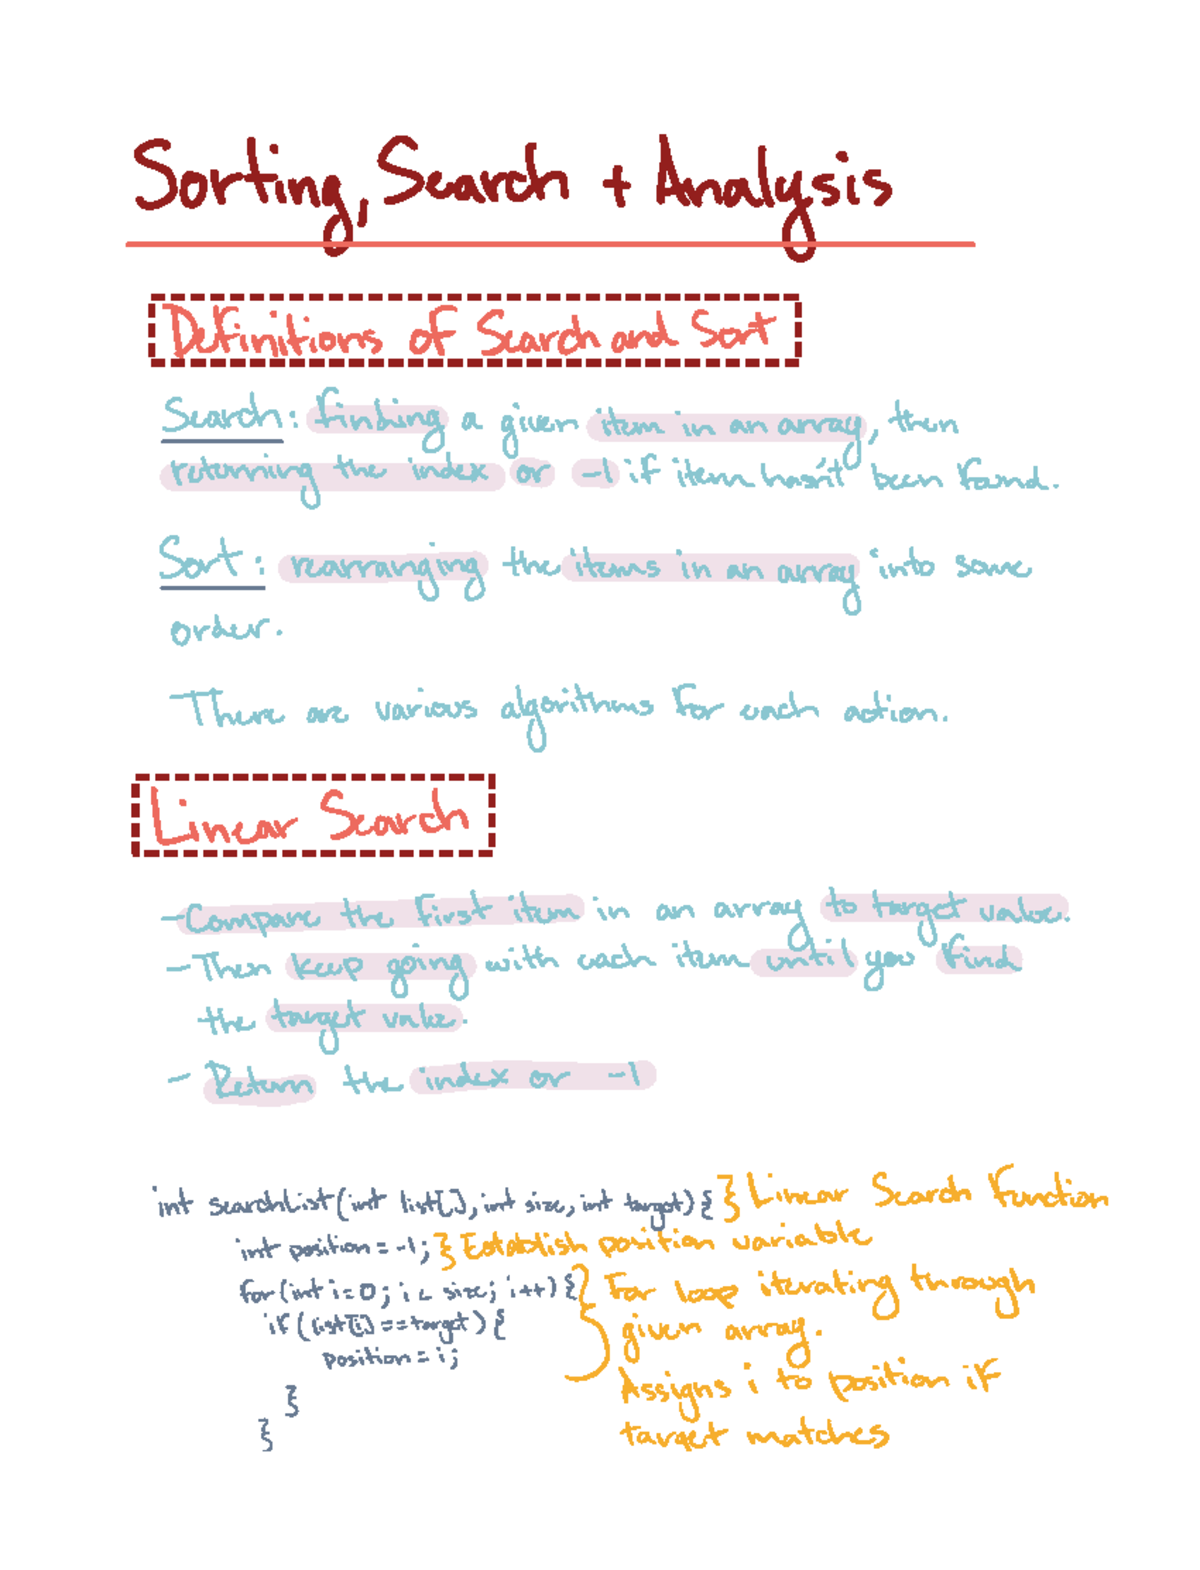 Sorting, Search + Analysis
Definitions of Search and Sort
Search: finding a given item in an array, then
returning the index or -1 if item hasn't been found.
Sort: rearranging the items in an array into some
order.
There are various algorithms for each action.
Linear Search
- Compare the first item in an array to target value.
- Then keep going with each item until you find
the target value.
- Return the index or -1
int searchList(int list[], int size, int target) { } Linear Search Function
int position = -1; } Establish position variable
for (int i = 0; i < size; i++) { } For loop iterating through
if (list[i] == target) { given array.
position = i;
Assigns i to position if
}
target matches
}